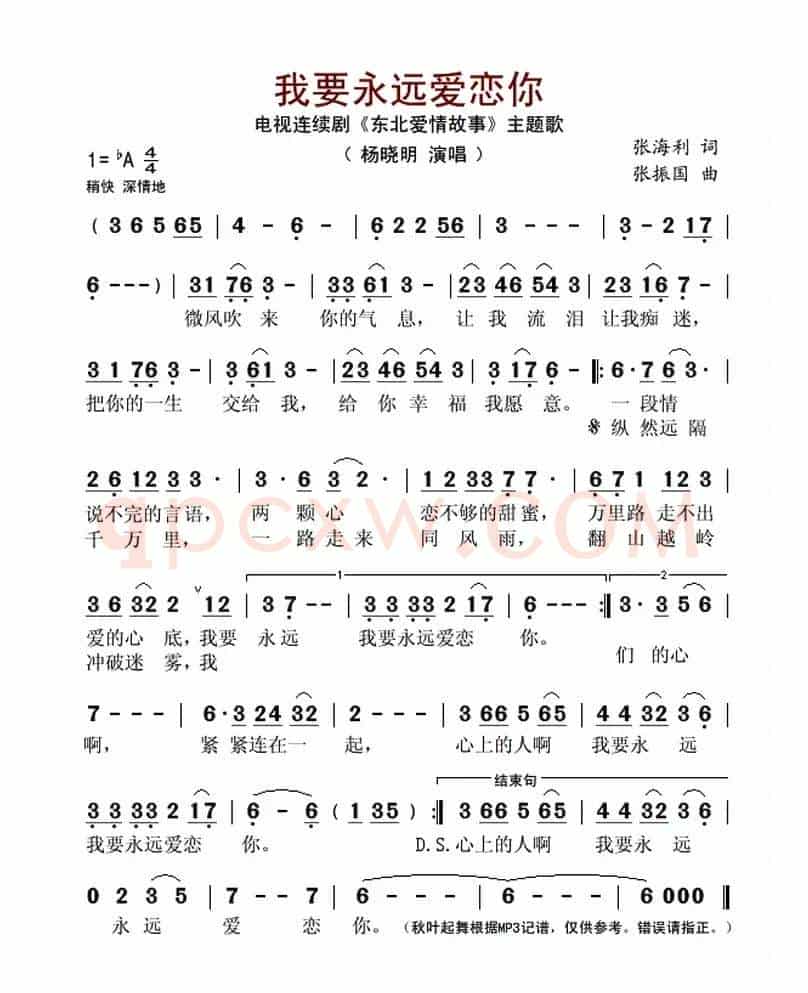 我要永远爱恋你
电视连续剧《东北爱情故事》主题歌
（ 杨晓明 演唱 ）
1=♭A 4/4
稍快 深情地
张海利 词
张振国 曲
( 3 6 5 65 | 4 - 6 - | 6 2 2 56 | 3 - - - | 3 - 2 17 |
6 - - - ) | 31 76 3 - | 33 61 3 - | 23 46 54 3 | 23 16 7 - |
微风吹 来 你的气 息， 让 我 流 泪 让我痴 迷，
3 1 76 3 - | 3 61 3 - | 23 46 54 3 | 3 17 6 - ‖: 6· 7 6 3· |
把你的一生 交给 我， 给 你 幸 福 我愿 意。 一 段情
𝄋 纵 然远 隔
2 6 12 3 3· | 3· 6 3 2· | 1 2 33 7 7· | 6 7 1 12 3 |
说不完的言语， 两 颗心 恋不够的甜蜜， 万里路 走不出
千 万 里， 一 路走来 同 风 雨， 翻 山 越 岭
1 2
3 6 32 2 ∨ 12 | 3 7 - - | 3 3 33 2 17 | 6 - - :‖ 3· 3 5 6 |
爱的心 底，我要 永远 我要永远爱恋 你。
冲破迷 雾，我 们 的心
7 - - - | 6· 3 24 32 | 2 - - - | 3 66 5 65 | 4 4 32 3 6 |
啊， 紧 紧连在一 起， 心上的人啊 我要永 远
结束句
3 3 33 2 17 | 6 - 6 - ( 1 35 ) :‖ 3 66 5 65 | 4 4 32 3 6 |
我要永远爱恋 你。 D.S.心上的人啊 我要永 远
0 2 3 5 | 7 - - 7 | 6 - - - | 6 - - - | 6 000 ‖
永 远 爱 恋 你。（秋叶起舞根据MP3记谱，仅供参考。错误请指正。）
qpcxw.com